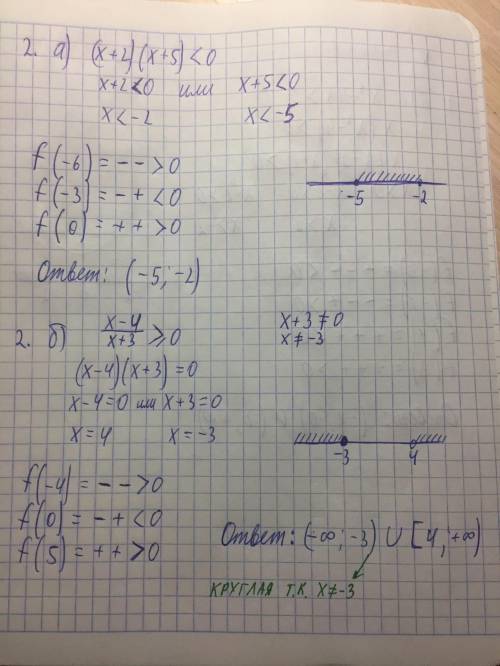 2. а) (x+2)(x+5)<0
x+2<0 или x+5<0
x<-2 x<-5
f(-6) = - - >0
f(-3) = - + <0
f(0) = + + >0
-5 -2
Ответ: (-5; -2)
2. б) x-4/x+3 ⩾0 x+3≠0
x≠-3
(x-4)(x+3)=0
x-4=0 или x+3=0
x=4 x=-3
-3 4
f(-4) = - - >0
f(0) = - + <0
f(5) = + + >0
Ответ: (-∞; -3) ∪ [4; +∞)
КРУГЛАЯ Т.К. X≠-3